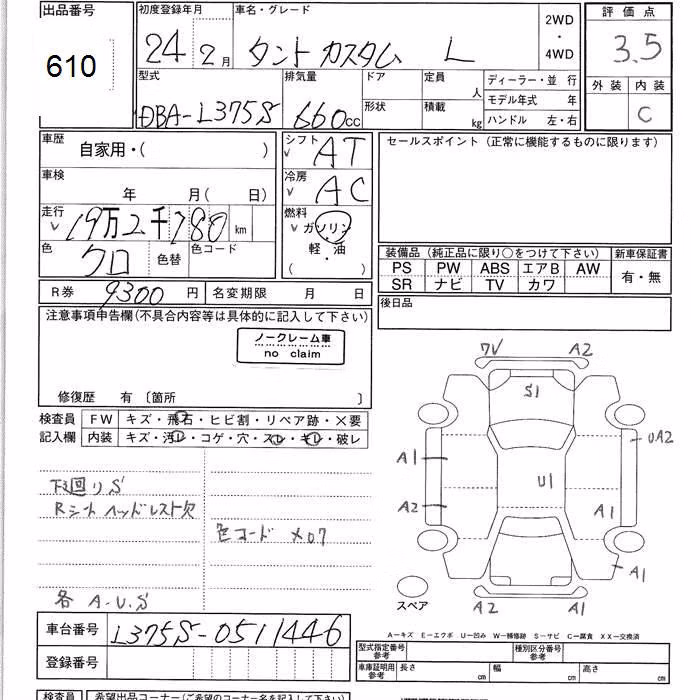 出品番号
610
初度登録年月
24 2月
車名・グレード
タント カスタム L
2WD
・
4WD
評価点
3.5
外装 内装
C
型式
DBA-L375S
排気量
660cc
ドア
形状
定員
人
積載
kg
ディーラー・並 行
モデル年式 年
ハンドル 左・右
車歴
自家用・( )
車検
年 月( 日)
走行
19万2千780 km
色
クロ
色替
色コード
シフト
AT
冷房
AC
燃料
ガソリン
・
軽・油
( )
セールスポイント(正常に機能するものに限ります)
装備品(純正品に限り○をつけて下さい)
PS PW ABS エアB AW
SR ナビ TV カワ
新車保証書
有・無
後日品
R券 9300 円
名変期限 月 日
注意事項申告欄(不具合内容等は具体的に記入して下さい)
ノークレーム車
no claim
修復歴 有 〔箇所 〕
検査員
記入欄
FW キズ・飛石・ヒビ割・リペア跡・×要
内装 キズ・汚レ・コゲ・穴・スレ・キレ・破レ
下廻りS
Rシート ヘッドレスト欠
色コード X07
各 A.U.S
7V A2
S1
UA2
A1
U1
A2
A1
A1
A2 A1
スペア
A-キズ E-エクボ U-凹み W-補修跡 S-サビ C-腐食 XX-交換済
車台番号 L375S-0511446
登録番号
型式指定番号
参考
種別区分番号
参考
車庫証明用
参考
長さ cm 幅 cm 高さ cm
検査員 希望出品コーナー(ご希望のコーナー名を記入下さい)